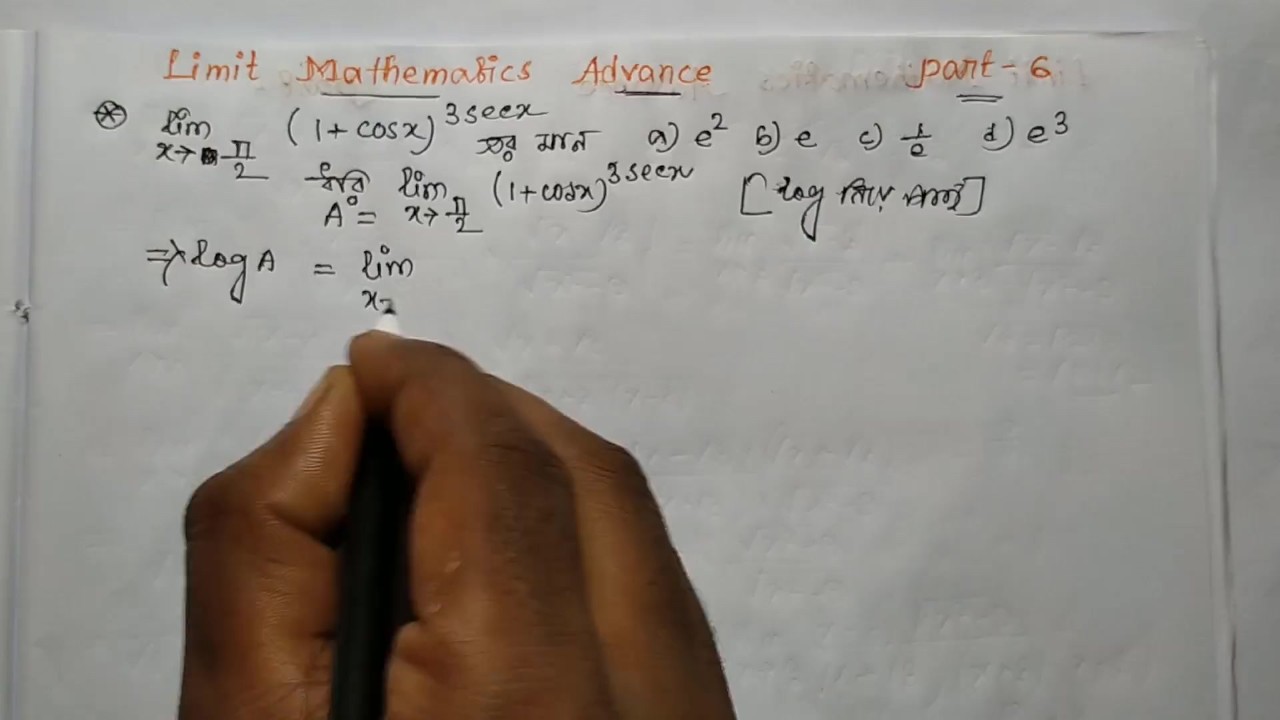 Limit Mathematics Advance part - 6
lim x→ π/2 (1 + cosx)^3secx এর মান a) e^2 b) e c) 1/e d) e^3
ধরি A = lim x→ π/2 (1 + cosx)^3secx [log নিয়ে পাই]
⇒ log A = lim x→